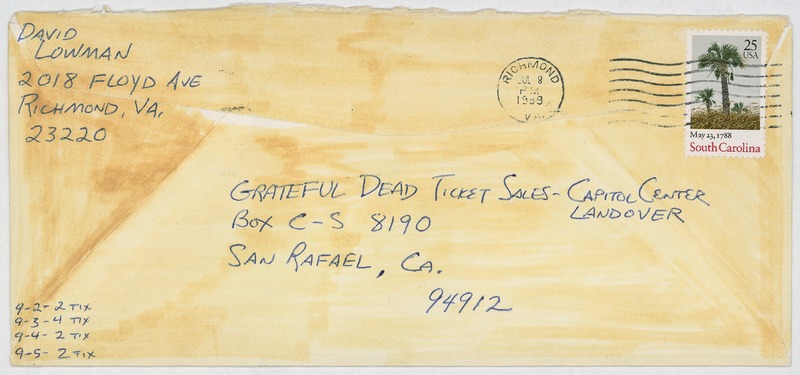 DAVID
LOWMAN
2018 FLOYD AVE
RICHMOND, VA.
23220
RICHMOND
JUL 8
PM
1989
VA
25
USA
May 23, 1788
South Carolina
GRATEFUL DEAD TICKET SALES - CAPITOL CENTER
LANDOVER
BOX C-S 8190
SAN RAFAEL, CA.
94912
9-2- 2 TIX
9-3- 4 TIX
9-4- 2 TIX
9-5- 2 TIX